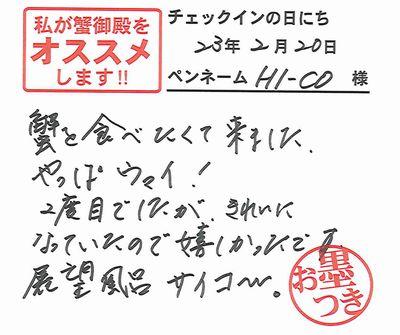 私が蟹御殿を
オススメ
します!!
チェックインの日にち
23年2月20日
ペンネーム HI-CO 様
蟹を食べたくて来ました。
やっぱウマイ!
2度目でしたが、きれいに
なっていたので嬉しかったです。
展望風呂 サイコ〜。
お墨
つき